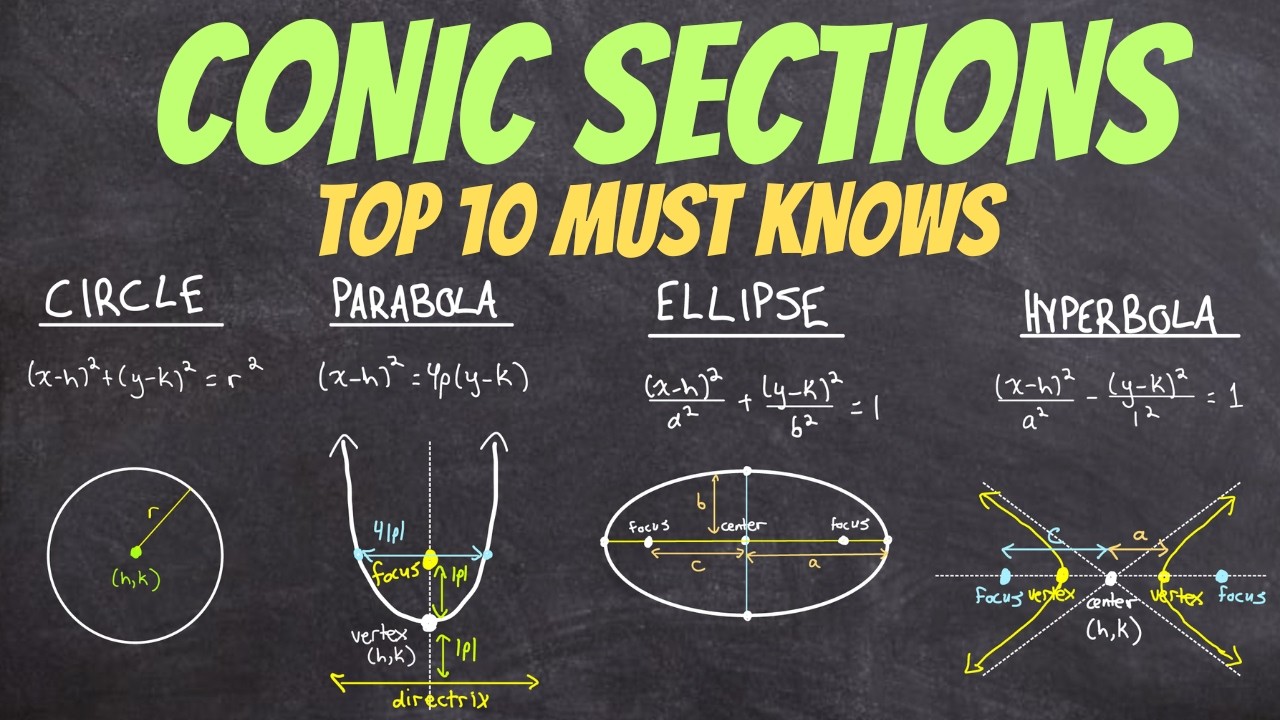 CONIC SECTIONS
TOP 10 MUST KNOWS
CIRCLE
(x-h)²+(y-k)²=r²
r
(h,k)
PARABOLA
(x-h)²=4p(y-k)
4|p|
focus
|p|
vertex
(h,k)
|p|
directrix
ELLIPSE
(x-h)²/a² + (y-k)²/b² = 1
b
focus center focus
c a
HYPERBOLA
(x-h)²/a² - (y-k)²/ = 1
c a
focus vertex center vertex focus
(h,k)